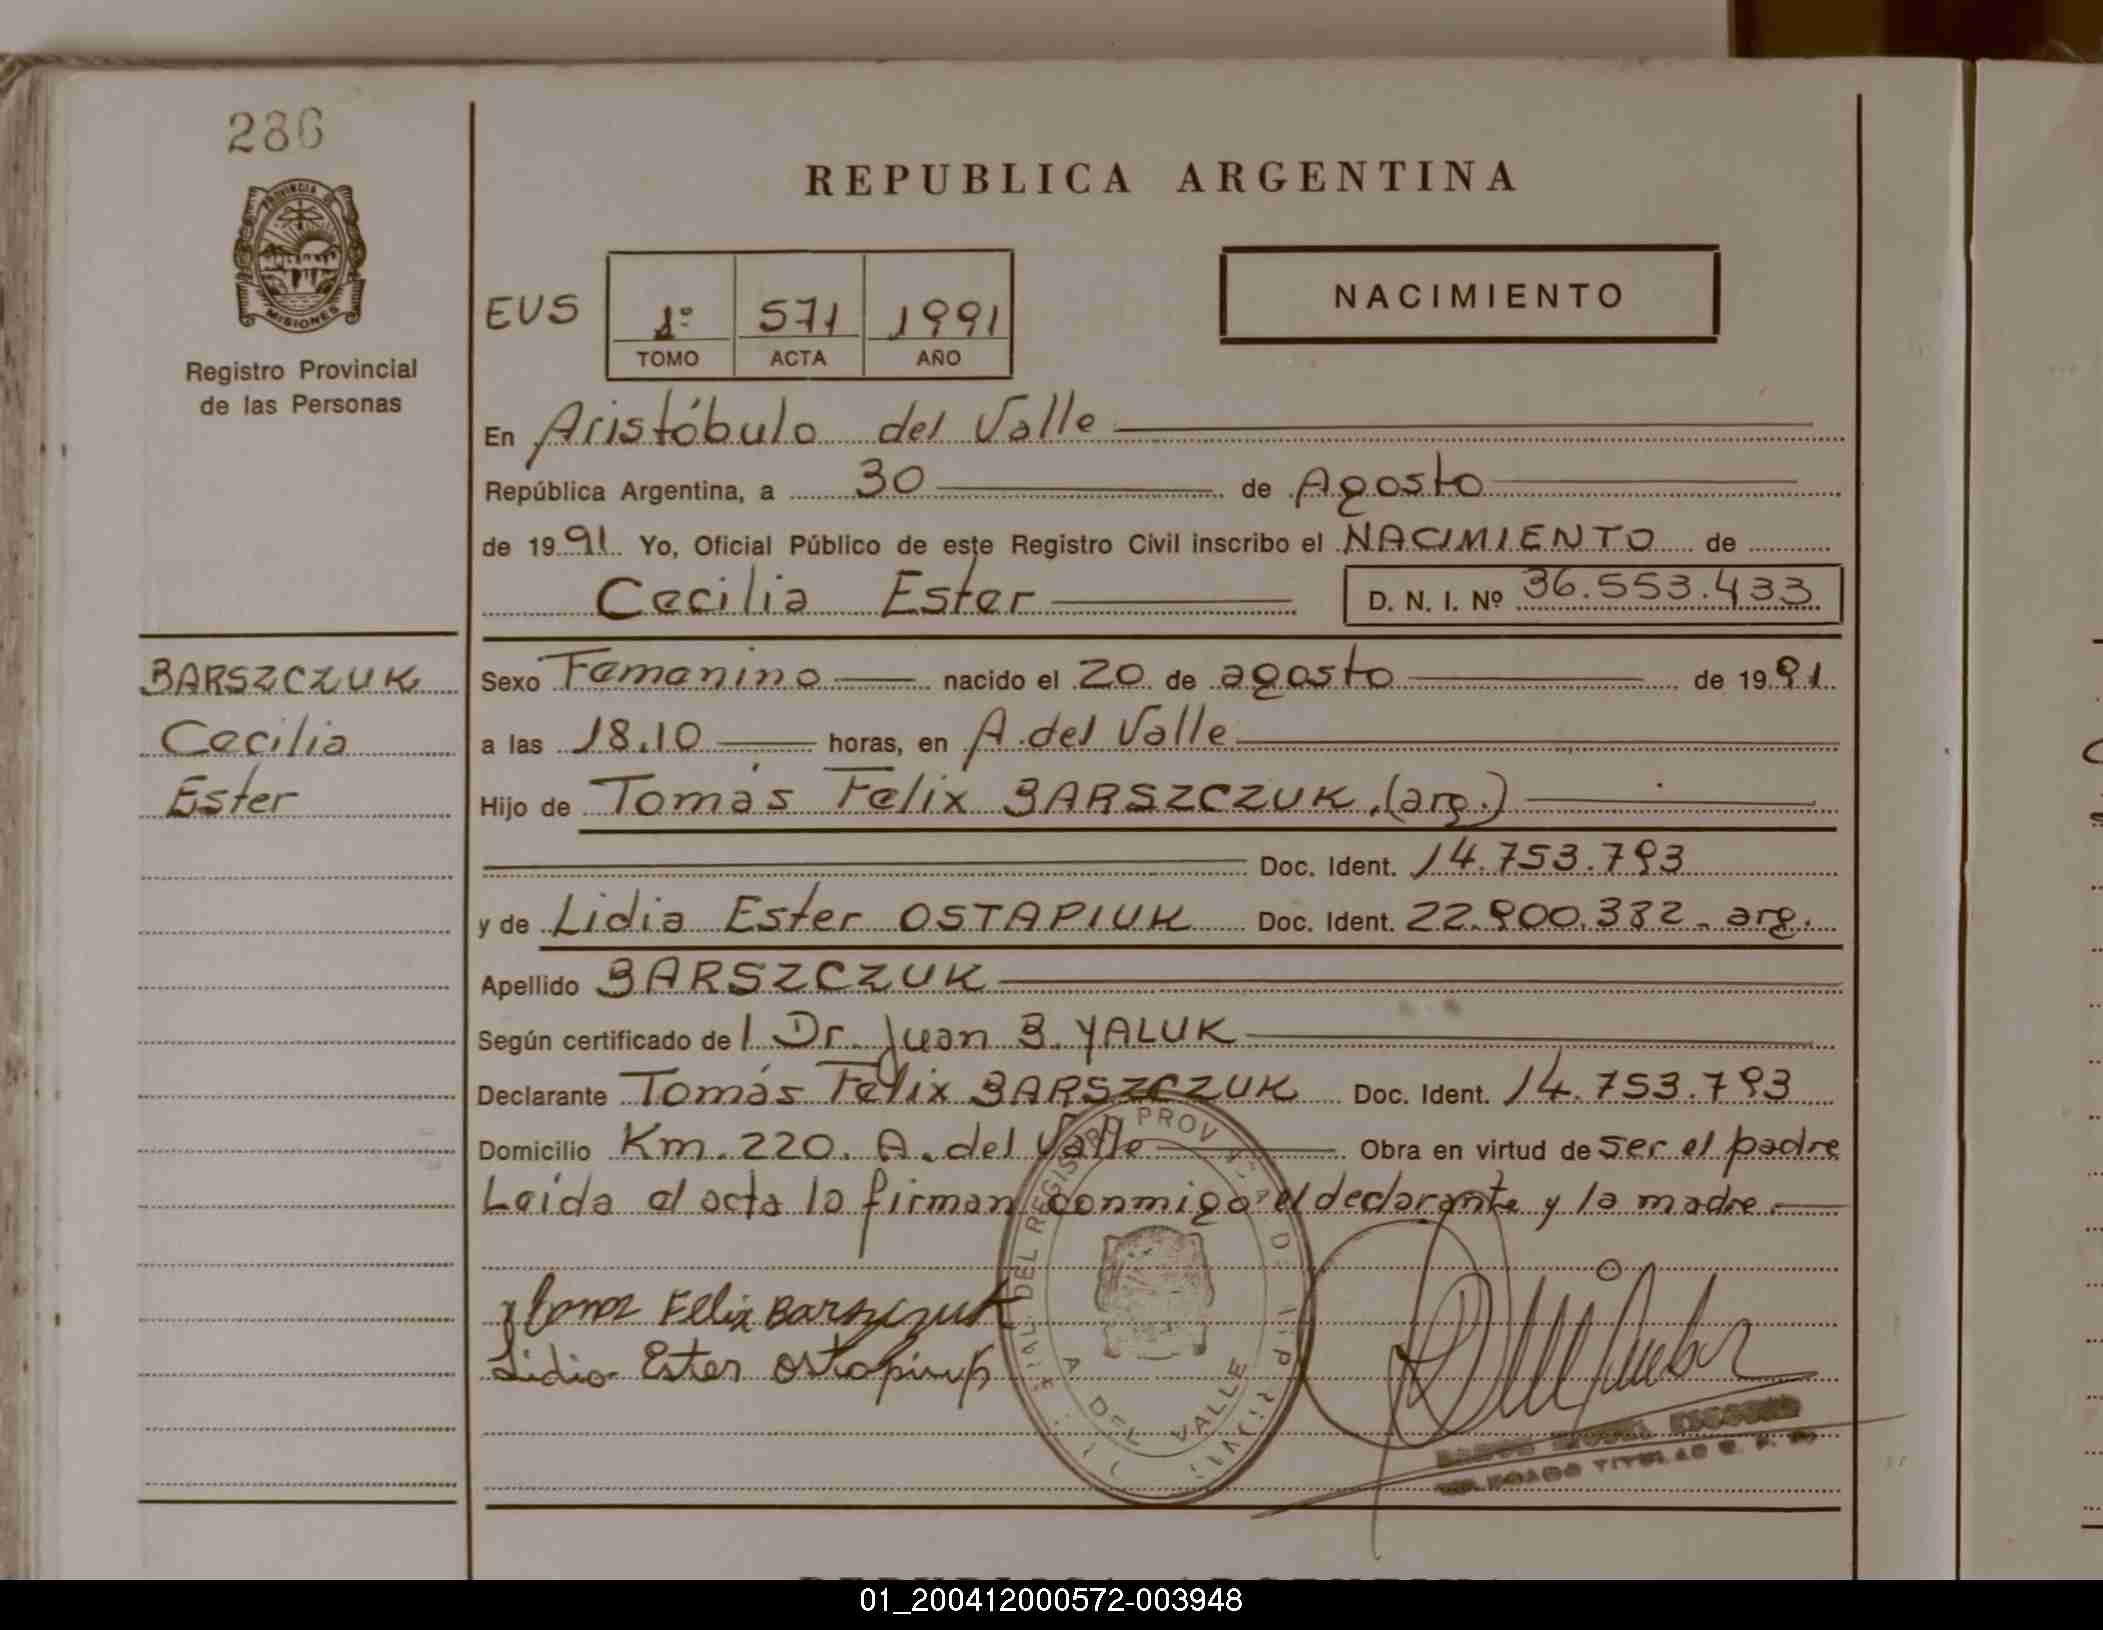 286
PROVINCIA DE
MISIONES
Registro Provincial
de las Personas
REPUBLICA ARGENTINA
EUS
1º 571 1991
TOMO ACTA AÑO
NACIMIENTO
En Aristóbulo del Valle
República Argentina, a 30 de Agosto
de 1991. Yo, Oficial Público de este Registro Civil inscribo el NACIMIENTO de
Cecilia Ester D. N. I. Nº 36.553.433
BARSZCZUK
Cecilia
Ester
Sexo Femenino nacido el 20 de agosto de 1991.
a las 18.10 horas, en A. del Valle
Hijo de Tomás Felix BARSZCZUK.(arg.)
Doc. Ident. 14.753.793
y de Lidia Ester OSTAPIUK Doc. Ident. 22.900.382- arg.
Apellido BARSZCZUK
Según certificado del Dr. Juan B. YALUK
Declarante Tomás Felix BARSZCZUK Doc. Ident. 14.753.793
Domicilio Km. 220. A. del Valle Obra en virtud de ser el padre
Leída el acta la firman conmigo el declarante y la madre.
Felix Barszczuk
Lidia Ester Ostapiuk
DEL REGISTRO PROV
A DEL VALLE
TITULAR
01_200412000572-003948